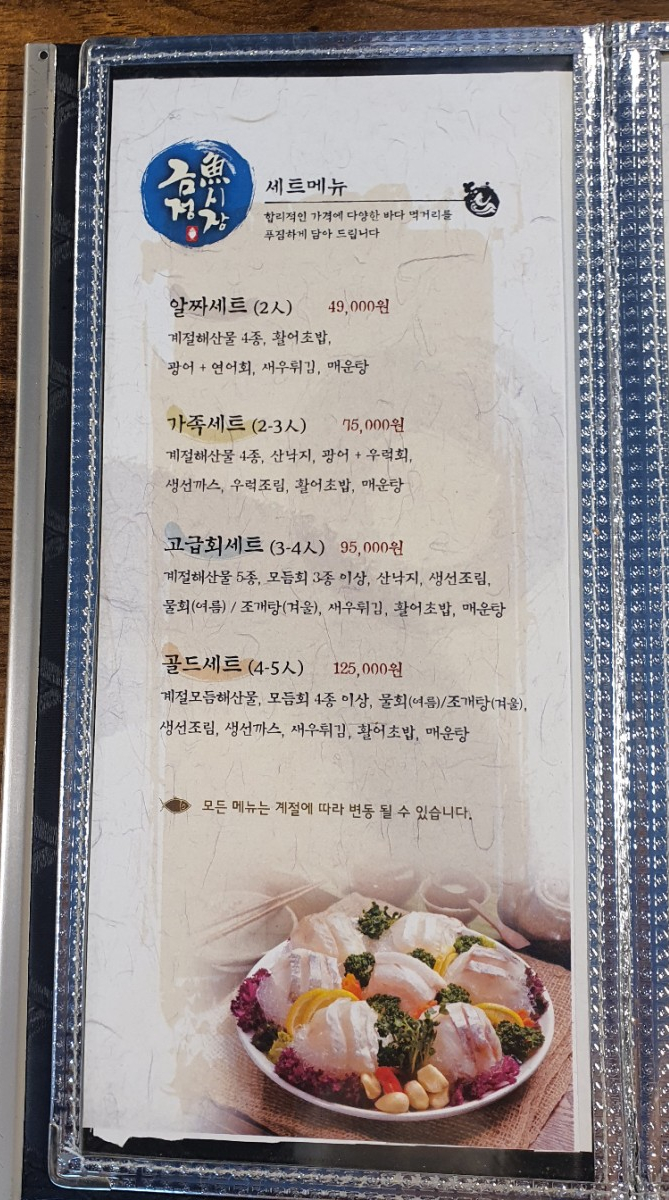 금정
魚시장
세트메뉴
합리적인 가격에 다양한 바다 먹거리를
푸짐하게 담아 드립니다
알짜세트 (2人) 49,000원
계절해산물 4종, 활어초밥,
광어 + 연어회, 새우튀김, 매운탕
가족세트 (2-3人) 75,000원
계절해산물 4종, 산낙지, 광어 + 우럭회,
생선까스, 우럭조림, 활어초밥, 매운탕
고급회세트 (3-4人) 95,000원
계절해산물 5종, 모듬회 3종 이상, 산낙지, 생선조림,
물회(여름) / 조개탕(겨울), 새우튀김, 활어초밥, 매운탕
골드세트 (4-5人) 125,000원
계절모듬해산물, 모듬회 4종 이상, 물회(여름)/조개탕(겨울),
생선조림, 생선까스, 새우튀김, 활어초밥, 매운탕
모든 메뉴는 계절에 따라 변동 될 수 있습니다.